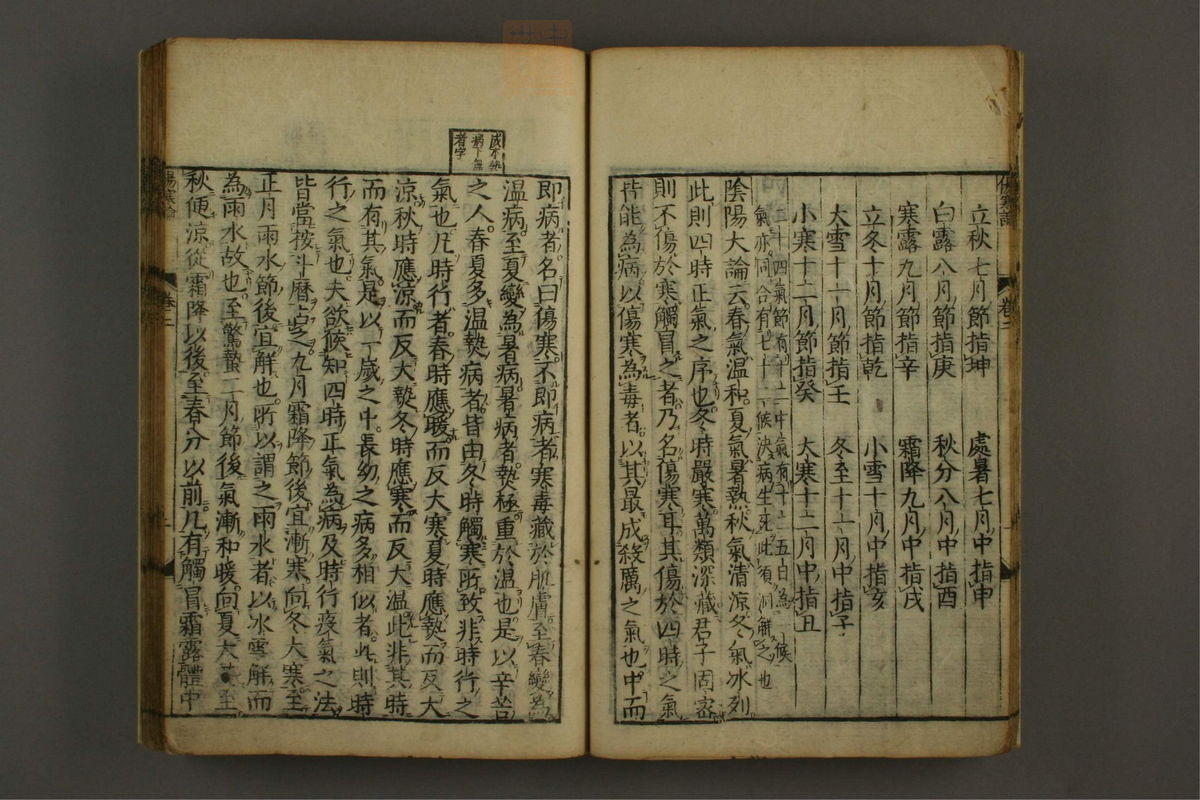 傷寒論 卷二
立秋七月節指坤 處暑七月中指申
白露八月節指庚 秋分八月中指酉
寒露九月節指辛 霜降九月中指戌
立冬十月節指乾 小雪十月中指亥
大雪十一月節指壬 冬至十一月中指子
小寒十二月節指癸 大寒十二月中指丑
二十四氣節有十二中氣有十二五日為一候
氣亦同合有七十二候決病生死此須洞解之也
陰陽大論云春氣温和夏氣暑熱秋氣清涼冬氣冰列
此則四時正氣之序也冬時嚴寒萬類深藏君子固密
則不傷於寒觸冒之者乃名傷寒耳其傷於四時之氣
皆能為病以傷寒為毒者以其最成殺厲之氣也中而
成本熱
病下無
者字
即病者名曰傷寒不即病者寒毒藏於肌膚至春變為
温病至夏變為暑病暑病者熱極重於温也是以辛苦
之人春夏多温熱病者皆由冬時觸寒所致非時行之
氣也凡時行者春時應暖而反大寒夏時應熱而反大
涼秋時應涼而反大熱冬時應寒而反大温此非其時
而有其氣是以一歲之中長幼之病多相似者此則時
行之氣也夫欲候知四時正氣為病及時行疫氣之法
皆當按斗曆占之九月霜降節後宜漸寒向冬大寒至
正月雨水節後宜解也所以謂之雨水者以冰雪解而
為雨水故也至驚蟄二月節後氣漸和暖向夏大至
秋便涼從霜降以後至春分以前凡有觸冒霜露體中
傷寒論 卷二